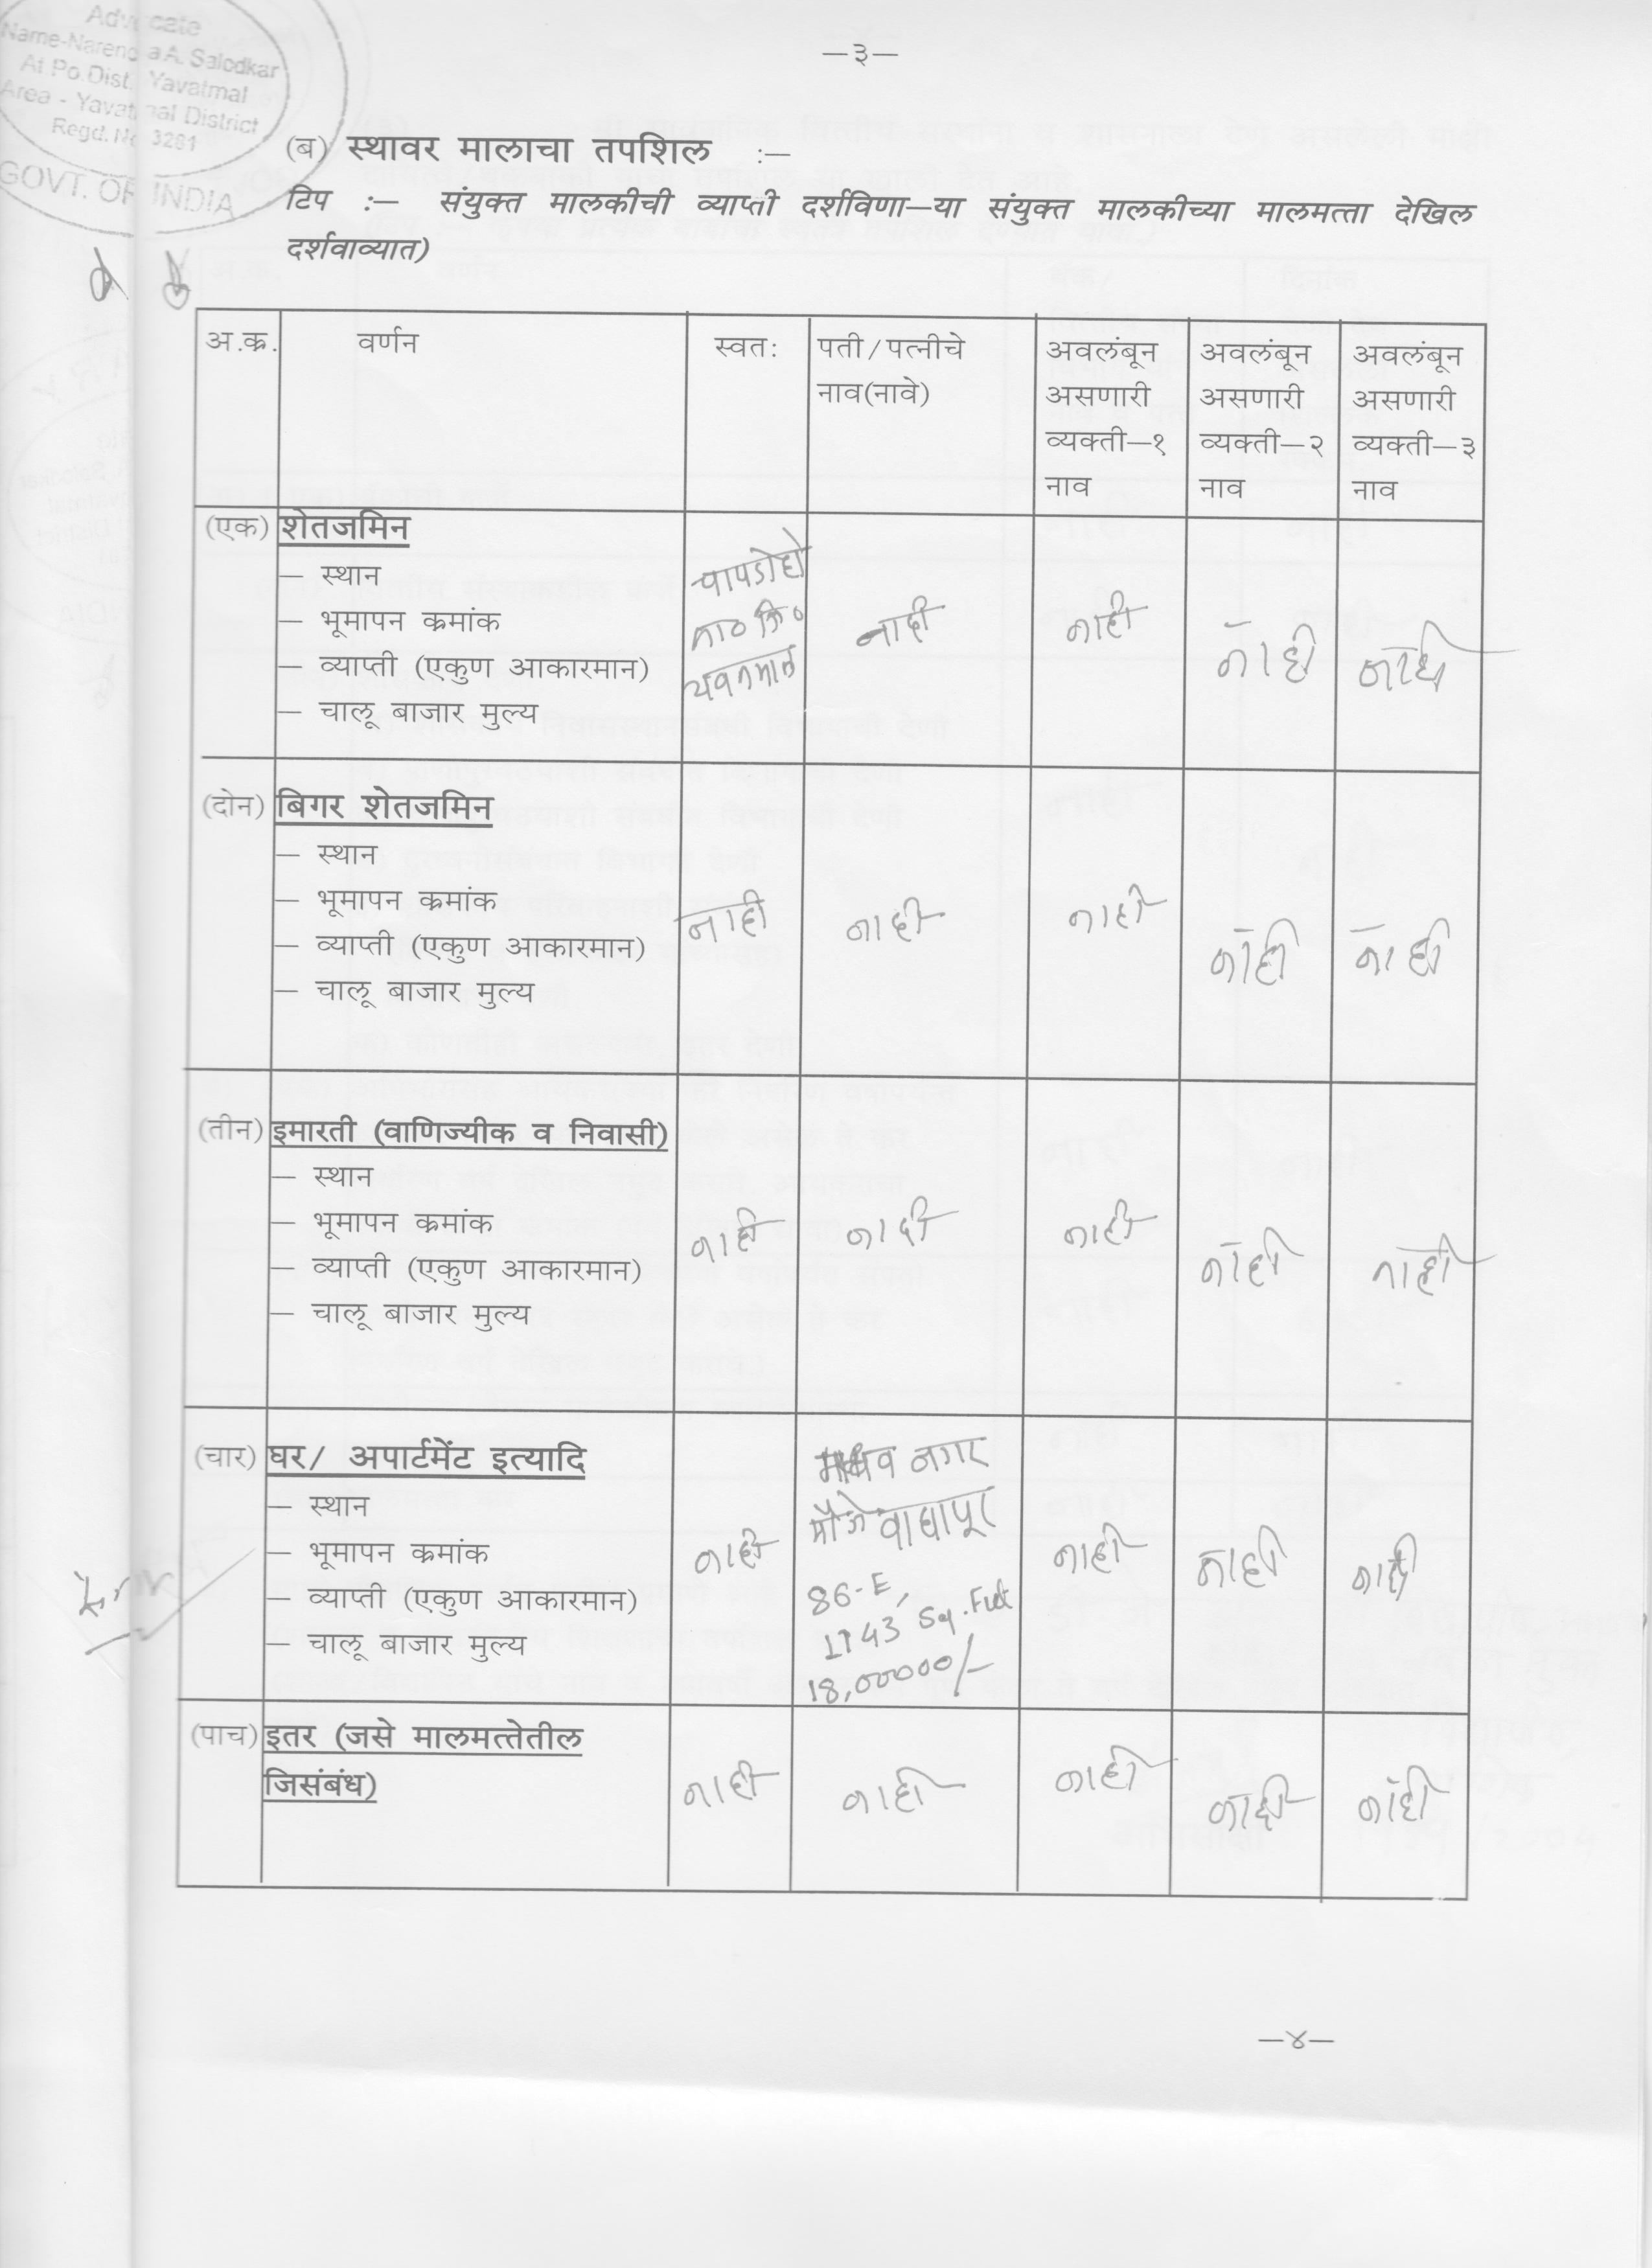 Advocate
Name-Narendra A. Salodkar
At.Po.Dist. Yavatmal
Area - Yavatmal District
Regd. No. 3281
GOVT. OF INDIA
—३—
(ब) स्थावर मालाचा तपशिल :—
टिप :— संयुक्त मालकीची व्याप्ती दर्शविणा—या संयुक्त मालकीच्या मालमत्ता देखिल
दर्शवाव्यात)
अ.क्र. वर्णन स्वतः पती/पत्नीचे नाव(नावे) अवलंबून असणारी व्यक्ती—१ नाव अवलंबून असणारी व्यक्ती—२ नाव अवलंबून असणारी व्यक्ती—३ नाव
(एक) शेतजमिन
— स्थान
— भूमापन क्रमांक
— व्याप्ती (एकुण आकारमान)
— चालू बाजार मुल्य
ता० जि०
यवतमाल
नाही नाही नाही नाही
(दोन) बिगर शेतजमिन
— स्थान
— भूमापन क्रमांक
— व्याप्ती (एकुण आकारमान)
— चालू बाजार मुल्य
नाही नाही नाही नाही नाही
(तीन) इमारती (वाणिज्यीक व निवासी)
— स्थान
— भूमापन क्रमांक
— व्याप्ती (एकुण आकारमान)
— चालू बाजार मुल्य
नाही नाही नाही नाही नाही
(चार) घर/ अपार्टमेंट इत्यादि
— स्थान
— भूमापन क्रमांक
— व्याप्ती (एकुण आकारमान)
— चालू बाजार मुल्य
नाही
नगर
मौजे वाघापूर
86-E,
1743 Sq.Feet
18,00000/-
नाही नाही नाही
(पाच) इतर (जसे मालमत्तेतील
जिसंबंध)
नाही नाही नाही नाही नाही
—४—